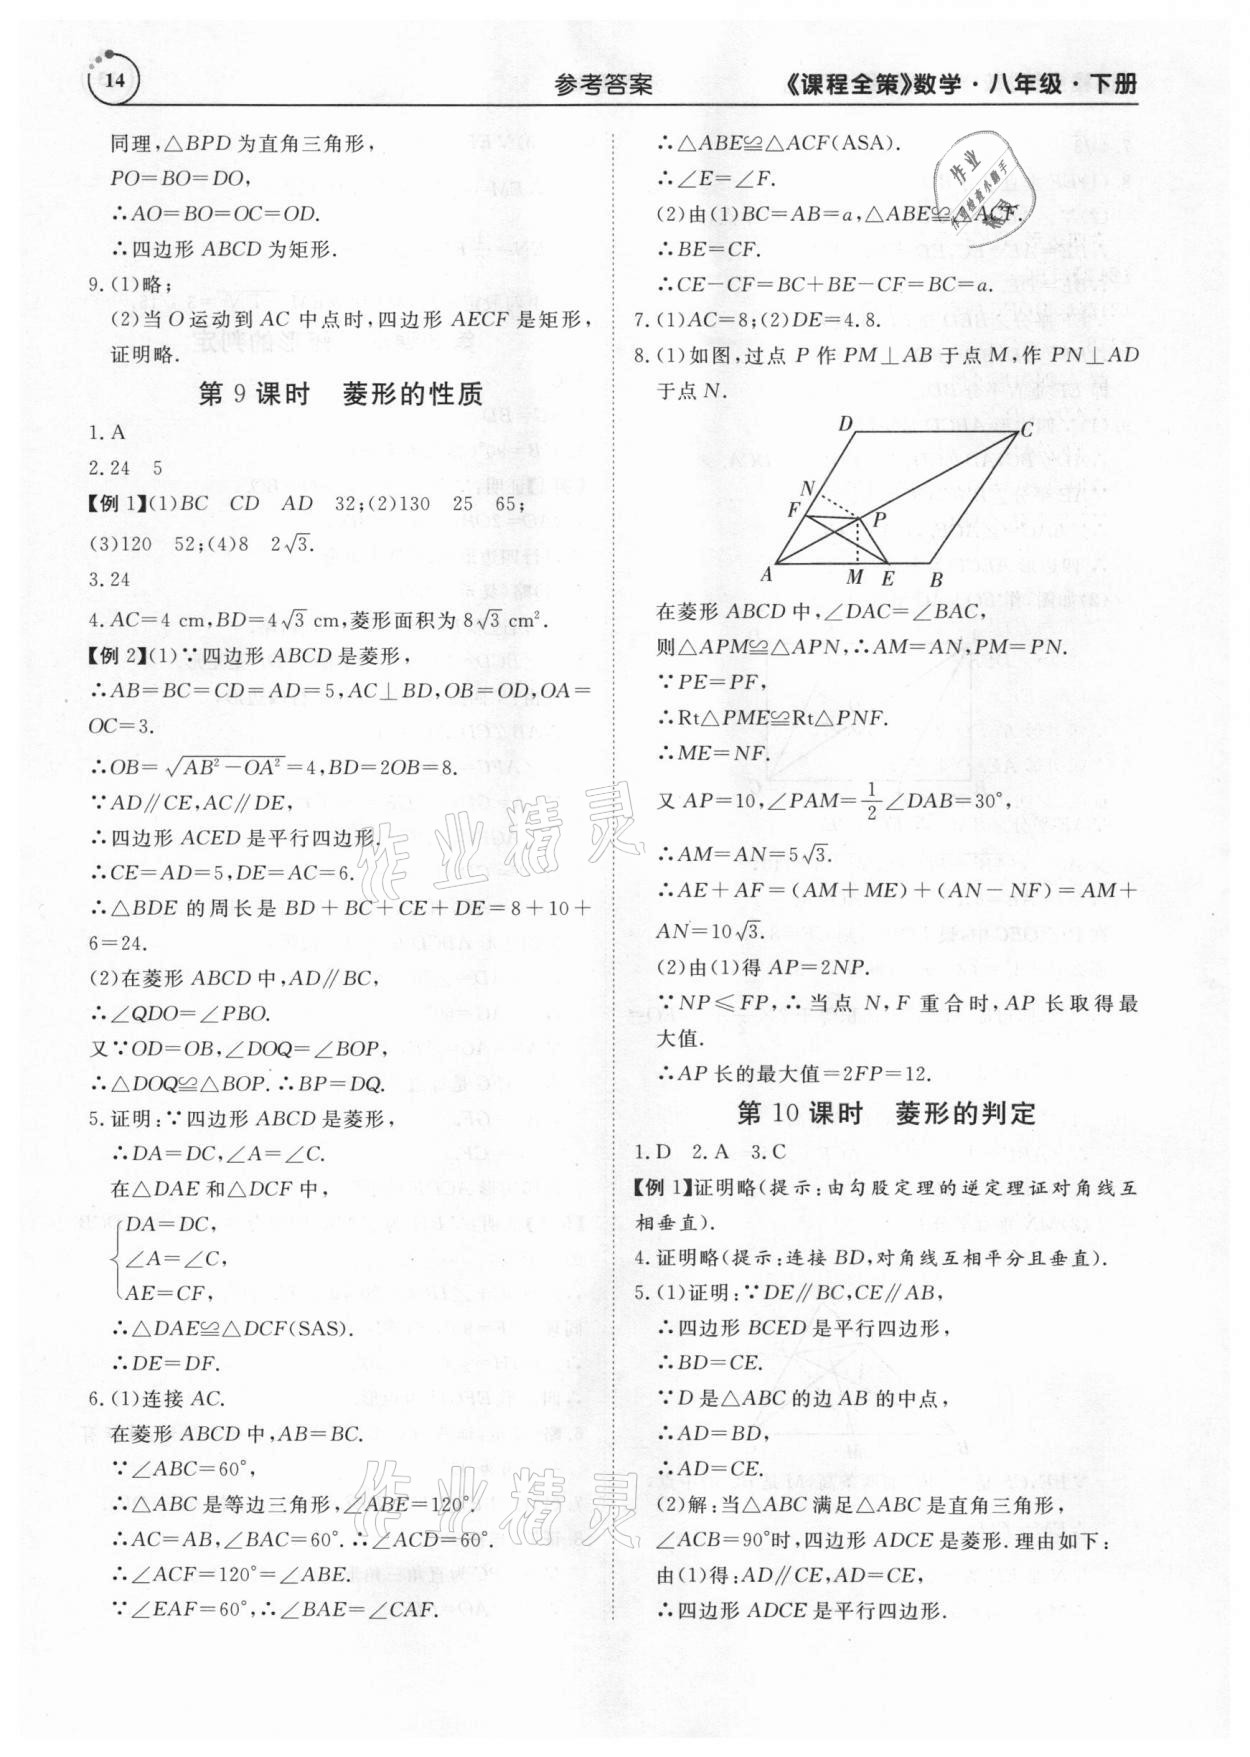 14
参考答案
《课程全策》数学·八年级·下册
同理,△BPD 为直角三角形,
PO=BO=DO,
∴AO=BO=OC=OD.
∴四边形 ABCD 为矩形.
9.(1)略;
(2)当 O 运动到 AC 中点时,四边形 AECF 是矩形,
证明略.
第 9 课时 菱形的性质
1. A
2.24 5
【例 1】(1)BC CD AD 32;(2)130 25 65;
(3)120 52;(4)8 2√3.
3.24
4.AC=4 cm,BD=4√3 cm,菱形面积为 8√3 cm².
【例 2】(1)∵四边形 ABCD 是菱形,
∴AB=BC=CD=AD=5,AC⊥BD,OB=OD,OA=
OC=3.
∴OB=√(AB²-OA²)=4,BD=2OB=8.
∵AD∥CE,AC∥DE,
∴四边形 ACED 是平行四边形.
∴CE=AD=5,DE=AC=6.
∴△BDE 的周长是 BD+BC+CE+DE=8+10+
6=24.
(2)在菱形 ABCD 中,AD∥BC,
∴∠QDO=∠PBO.
又∵OD=OB,∠DOQ=∠BOP,
∴△DOQ≌△BOP.∴BP=DQ.
5.证明:∵四边形 ABCD 是菱形,
∴DA=DC,∠A=∠C.
在△DAE 和△DCF 中,
DA=DC,
∠A=∠C,
AE=CF,
∴△DAE≌△DCF(SAS).
∴DE=DF.
6.(1)连接 AC.
在菱形 ABCD 中,AB=BC.
∵∠ABC=60°,
∴△ABC 是等边三角形,∠ABE=120°.
∴AC=AB,∠BAC=60°.∴∠ACD=60°.
∴∠ACF=120°=∠ABE.
∵∠EAF=60°,∴∠BAE=∠CAF.
∴△ABE≌△ACF(ASA).
∴∠E=∠F.
(2)由(1)BC=AB=a,△ABE≌△ACF.
∴BE=CF.
∴CE-CF=BC+BE-CF=BC=a.
7.(1)AC=8;(2)DE=4.8.
8.(1)如图,过点 P 作 PM⊥AB 于点 M,作 PN⊥AD
于点 N.
D
C
N
F
P
A
M
E
B
在菱形 ABCD 中,∠DAC=∠BAC,
则△APM≌△APN,∴AM=AN,PM=PN.
∵PE=PF,
∴Rt△PME≌Rt△PNF.
∴ME=NF.
又 AP=10,∠PAM=1/2∠DAB=30°,
∴AM=AN=5√3.
∴AE+AF=(AM+ME)+(AN-NF)=AM+
AN=10√3.
(2)由(1)得 AP=2NP.
∵NP≤FP,∴当点 N,F 重合时,AP 长取得最
大值.
∴AP 长的最大值=2FP=12.
第 10 课时 菱形的判定
1.D 2.A 3.C
【例 1】证明略(提示:由勾股定理的逆定理证对角线互
相垂直).
4.证明略(提示:连接 BD,对角线互相平分且垂直).
5.(1)证明:∵DE∥BC,CE∥AB,
∴四边形 BCED 是平行四边形,
∴BD=CE.
∵D 是△ABC 的边 AB 的中点,
∴AD=BD,
∴AD=CE.
(2)解:当△ABC 满足△ABC 是直角三角形,
∠ACB=90°时,四边形 ADCE 是菱形.理由如下:
由(1)得:AD∥CE,AD=CE,
∴四边形 ADCE 是平行四边形.
作业精灵
作业精灵